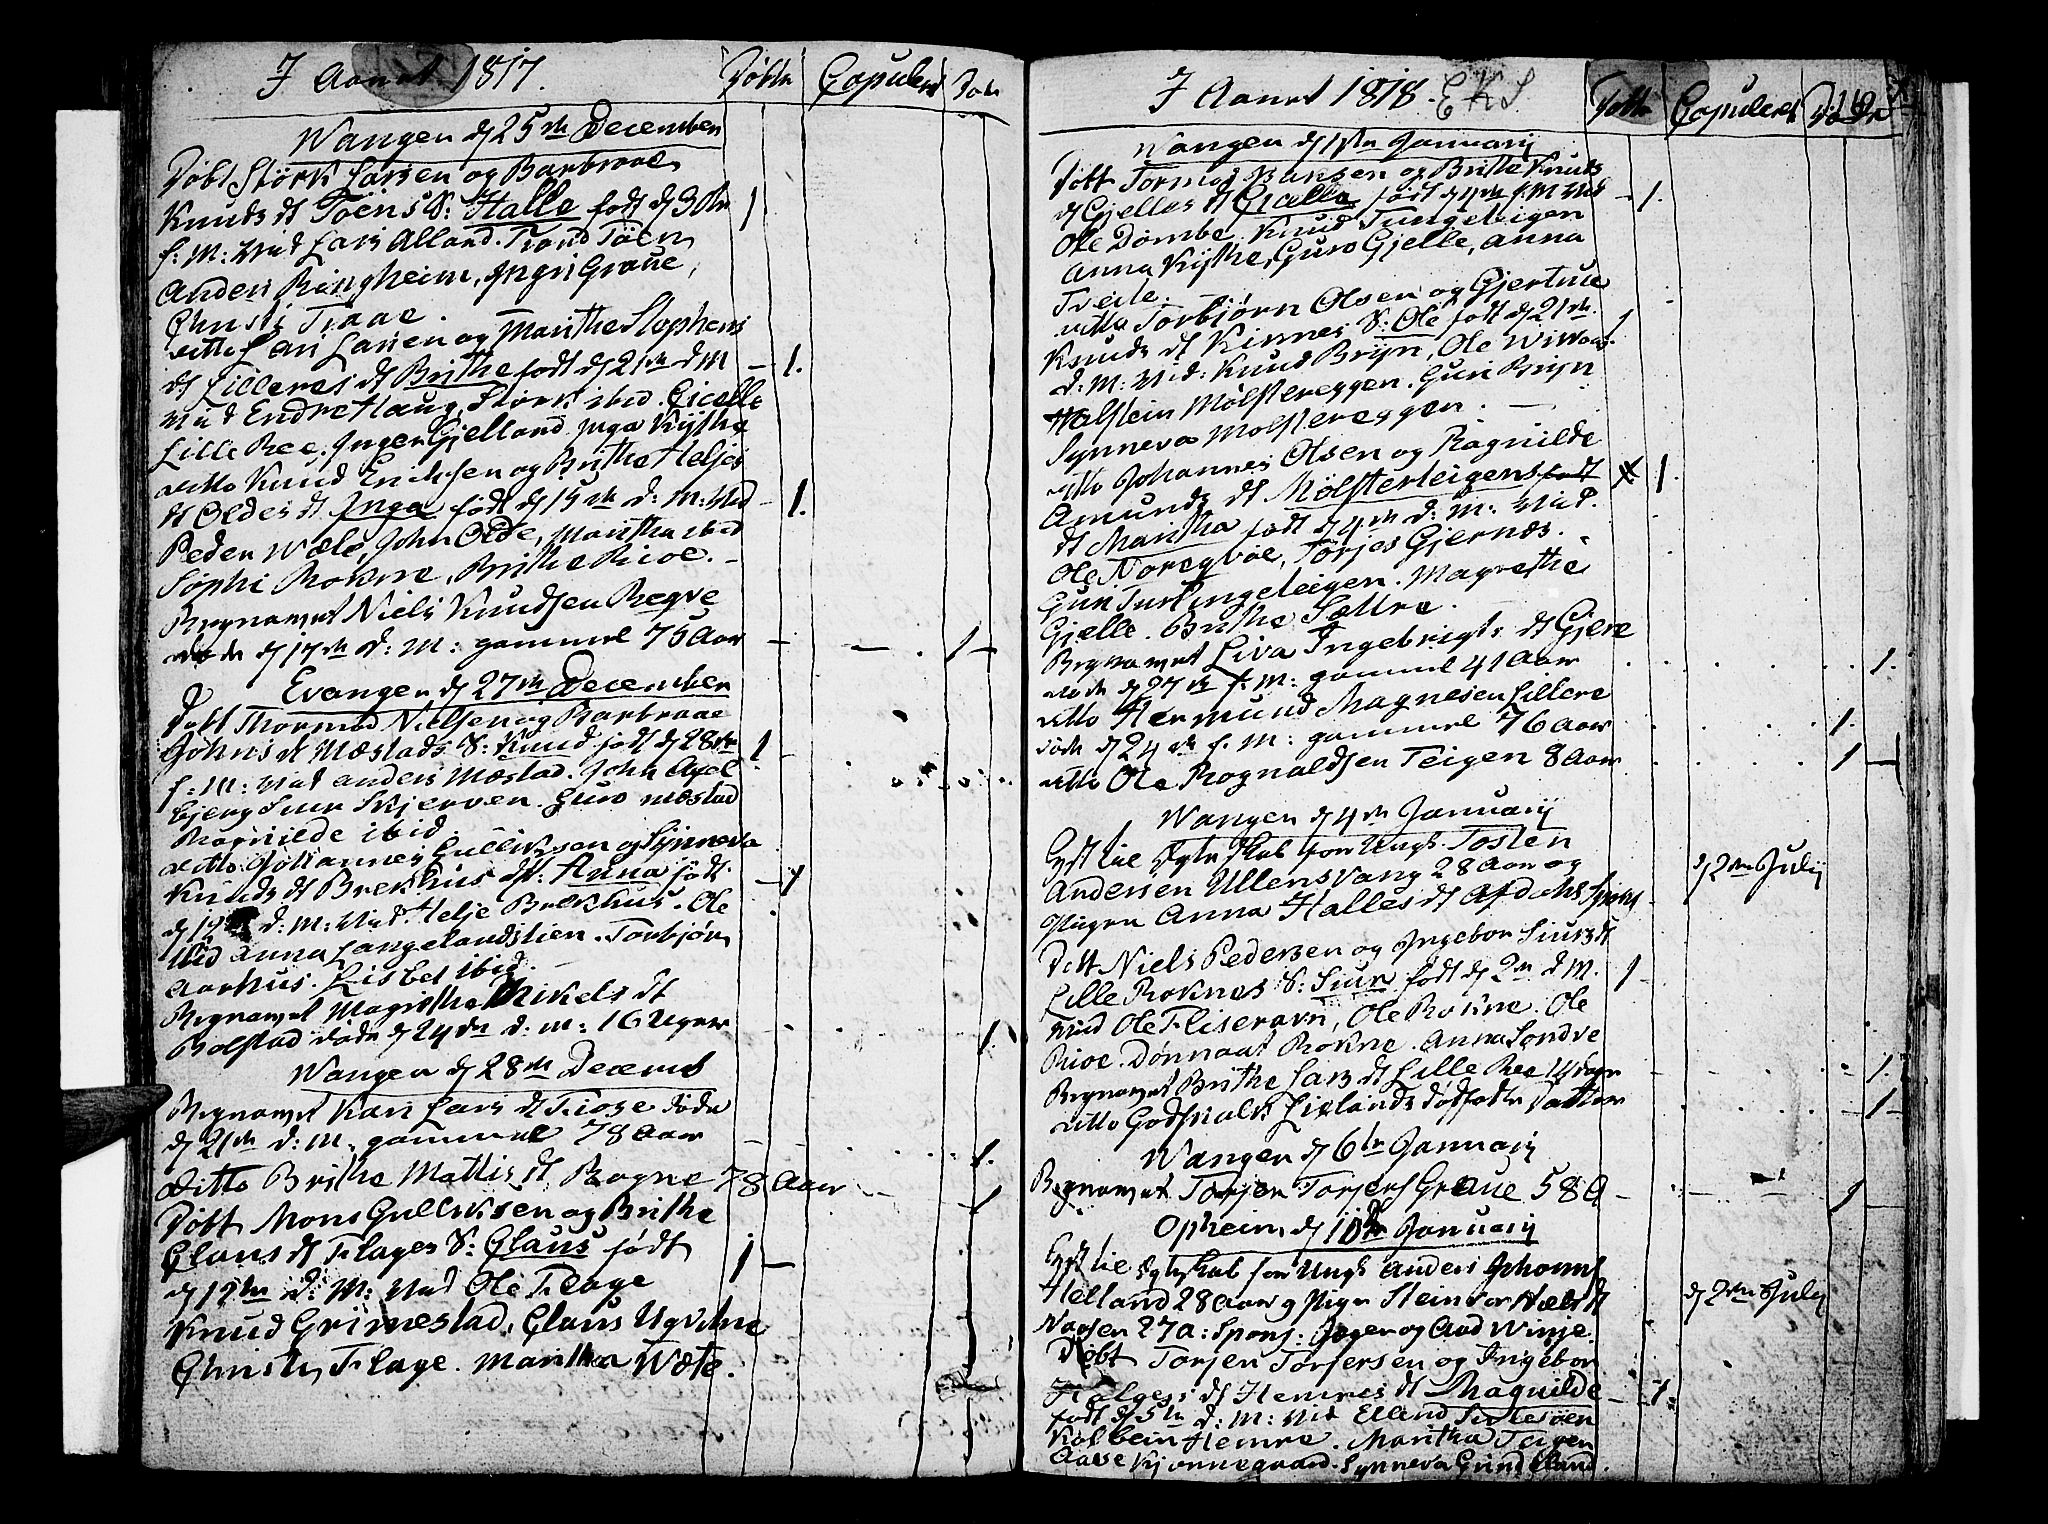 I Aaret 1817. Döbte Copulered Döde
Wangen d 25de December
Döbt Störk Larsen og Barbroae
Knuds dt Töens S: Halle födt d 30te 1
f: M: Vid Lars Alland. Trond Töen
Anders Ringheim, Ingri Graue,
Christi Traae.
ditto Lars Larsen og Marithe Stephens
dt Lilleres dt Brithe födt d 21de d M - 1.
Vid Endre Haug, Störk ibid. Gicelle
Lille Ree. Inger Gjelland. Inga Kythe
ditto Knud Erichsen og Brithe Heljes
dt Oldes dt Inga födt d 15de d: M: Vid - 1.
Peder Wæle, John Olde, Maritha ibid
Söphi Rokne, Brithe Rioe. -
Begravet Niels Knudsen Regve
döde d 17de d: M: gammel 75 Aar - - 1 -
Evanger d 27de December
Döbt Thormod Nielsen og Barbroae
Johns dt Mæstads S: Knud födt d 28de 1 -
f: M: Vid Anders Mæstad. John Axel
bjerg Siur Skjerven. Guro Mæstad
Ragnilde ibid.
ditto Johannes Gulleksen og Synneva
Knuds dt Brekhus dt: Anna födt - 1
d 12 d: M: Vid Helje Brekhus. Ole
ibid Anna Langelandslien. Torbjör
Aarhus. Lisbet ibid.
Begravet Magrethe Mikels dt
Bolstad döde d 24de d: M: 16 Uger 1.
Wangen d 28de Decembr
Begravet Kari Lars dt Tiose döde
d 21de d: M: gammel 78 Aar - 1.
Ditto Brithe Mattis dt Bogne 78 Aar - 1
Döbt Mons Gulleksen og Brithe
Claus dt Flages S: Claus födt 1 -
d 12te d: M: Vid Ole Flage
Knud Grimestad, Claus Ugvitne
Christi Flage. Maritha Wæte.
I Aaret 1818. EKS. Döbte Copulered Döde
Wangen d 1ste Januarij
Döbt Tormo Hansen og Brithe Knuds
dt Gjelles dt Gicelle födt d 11te f. M Vid - 1.
Ole Dömbe Knud Tungeteigen
Anna Kythe, Guro Gjelle, Anna
Tveite.
ditto Torbjörn Olsen og Gjertrue
Knuds dt Kinnes S: Ole födt d 21de 1
d: M: Vid: Knud Bryn, Ole Wiwaas
Halstein Mölstereggen. Guri Bryn
Synneva Molstereggen. -
ditto Johannes Olsen og Ragnilde
Amunds dt Mölsterteigens födt X 1.
dt Maritha födt d 4de d: M: Vid.
Ole Noregvae, Torjes Gjernæs.
Guri Tungeteigen. Magrethe
Gjelle. Brithe Sættre.
Begravet Liva Ingebrigts dt Gjere
döde d 27de f: M: gammel 41 Aar 1.
ditto Hermund Magnesen Lillere
döde d 24de f. M: gammel 76 Aar 1.
ditto Ole Rognaldsen Teigen 8 Aar 1
Wangen d 4de Januarij
Lyst til Egteskab for Ungk Tosten
Andersen Ullensvang 28 Aar og d 2den Julij
Pigen Anna Halles dt Afdahl Spons
Döbt Niels Pedersen og Ingebor Siurs dt
Lille Roknes S: Siur födt d 2n d M. 1 -
Vid Ole Fliseravn, Ole Rokne. Ole
Rioe. Dönnaat Rokne. Anna Sondve
Begravet Brithe Lars dt Lille Ree 14 dage 1.
ditto Godskalk Lirlands dödfödte Datter 1
Wangen d 6te Januarij
Begravet Torjer Torjers Graue 58 A - 1
Opheim d 10de Januarij
Lyst til Egteskab for Ungk Anders Johanns
Helland 28 Aar og Pigen Steinvor Nels dt d 2den Julij
Naasen 27 A: Spons. Joger og Aad Winje.
Döbt Torjer Torjersen og Ingebor
Holgers dt Hemres dt Ragnilde - 1.
födt d 5te d: M: Vid Elland Sælesöen
Kolbein Hemre. Maritha Teigen
Aase Kjonnegaard. Synneva Grindeland.